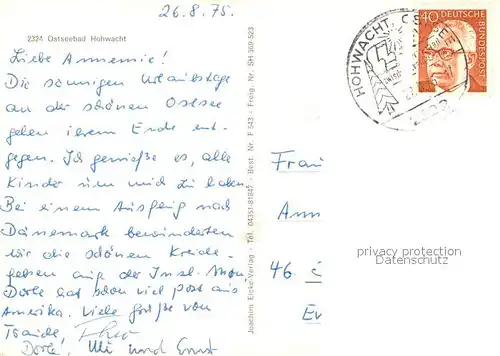 26.8.75.
2324 Ostseebad Hohwacht
Liebe Annemie!
Die sonnigen Urlaubstage
an der schönen Ostsee
gehen ihrem Ende ent-
gegen. Ich genieße es, alle
Kinder um mich zu haben.
Bei einem Ausflug nach
Dänemark bewunderten
wir die schönen Kreide-
felsen auf der Insel Møn.
Dorle hat schon viel Post aus
Amerika. Viele Grüße von
Traude,
Dorle, Uli und Ernst
Joachim Eicke-Verlag · Tel. 04351-81847 · Best. Nr. F 543 · Freig. Nr. SH 360-523
HOHWACHT, OSTSEE
2322
40 DEUTSCHE BUNDESPOST
Frau
Ann
46.
privacy protection
Datenschutz